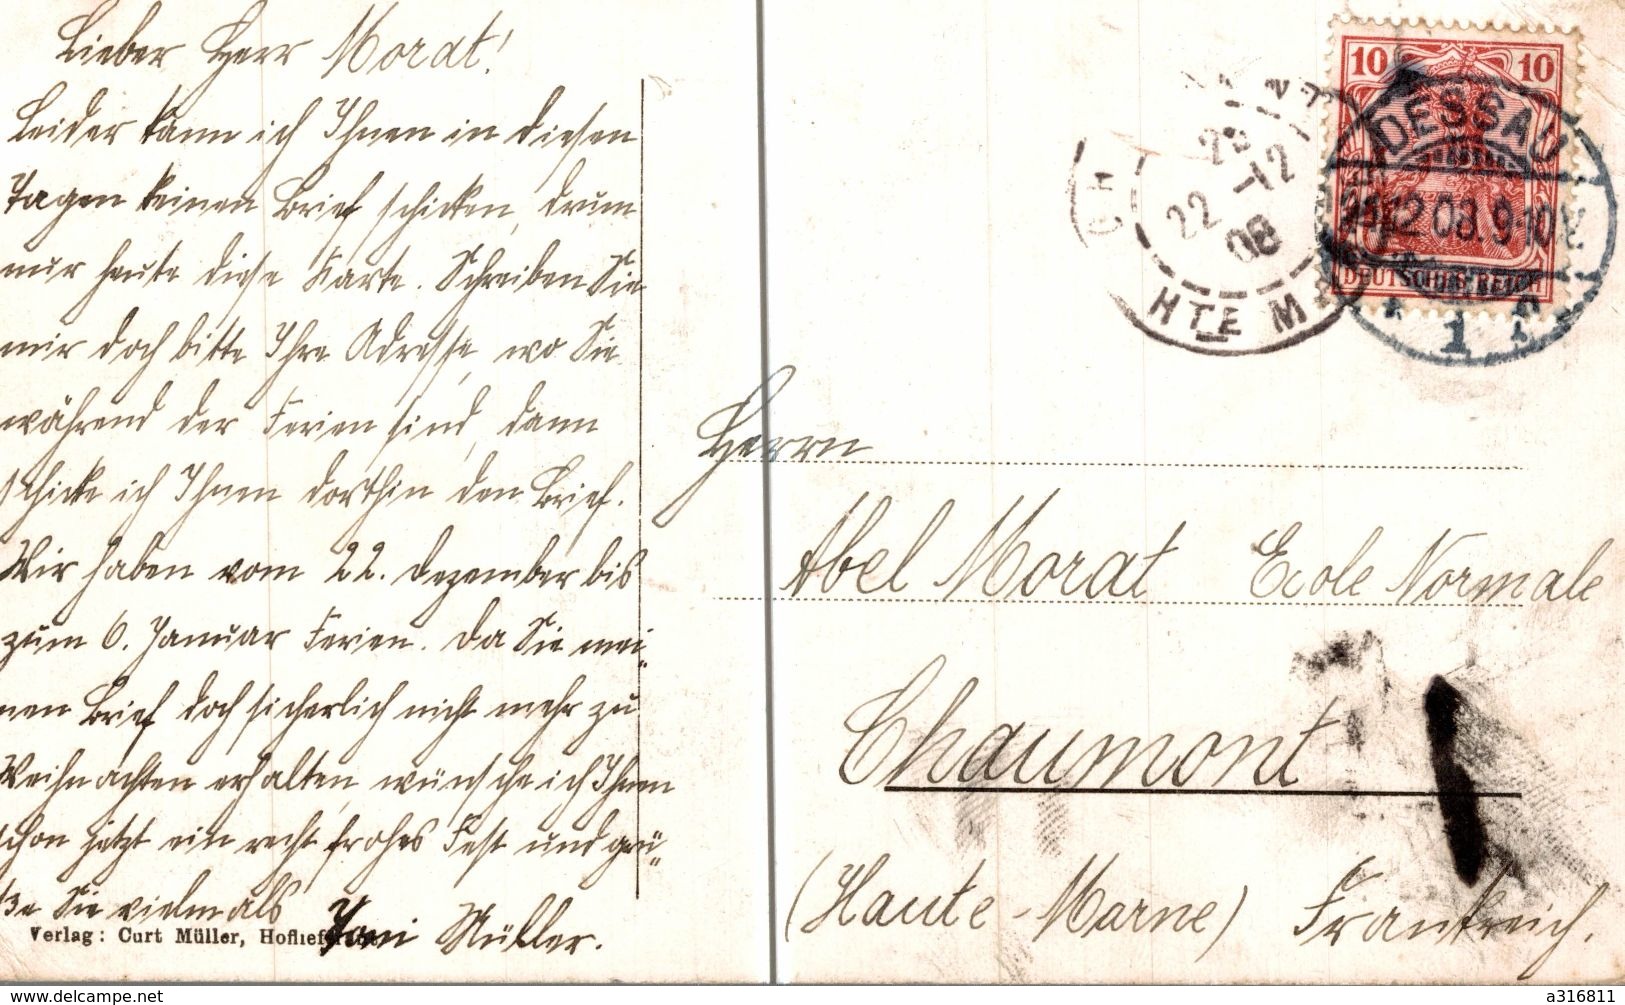 Lieber Herr Morat!
Leider kann ich Ihnen in diesen
Tagen keinen Brief schicken, drum
nur heute diese Karte. Schreiben Sie
mir doch bitte Ihre Adresse, wo Sie
während der Ferien sind, dann
schicke ich Ihnen dorthin den Brief.
Wir haben vom 22. Dezember bis
zum 6. Januar Ferien. Da Sie mei-
nen Brief doch sicherlich nicht mehr zu
Weihnachten erhalten, wünsche ich Ihnen
schon jetzt ein recht frohes Fest und grü-
ße Sie vielmals
Müller.
Verlag: Curt Müller,
10 10
DEUTSCHES REICH
DESSAU
12.08.9-10
1
22 -12
08
HTE M
Herrn
Abel Morat Ecole Normale
Chaumont
(Haute-Marne) Frankreich.
www.delcampe.net
a316811